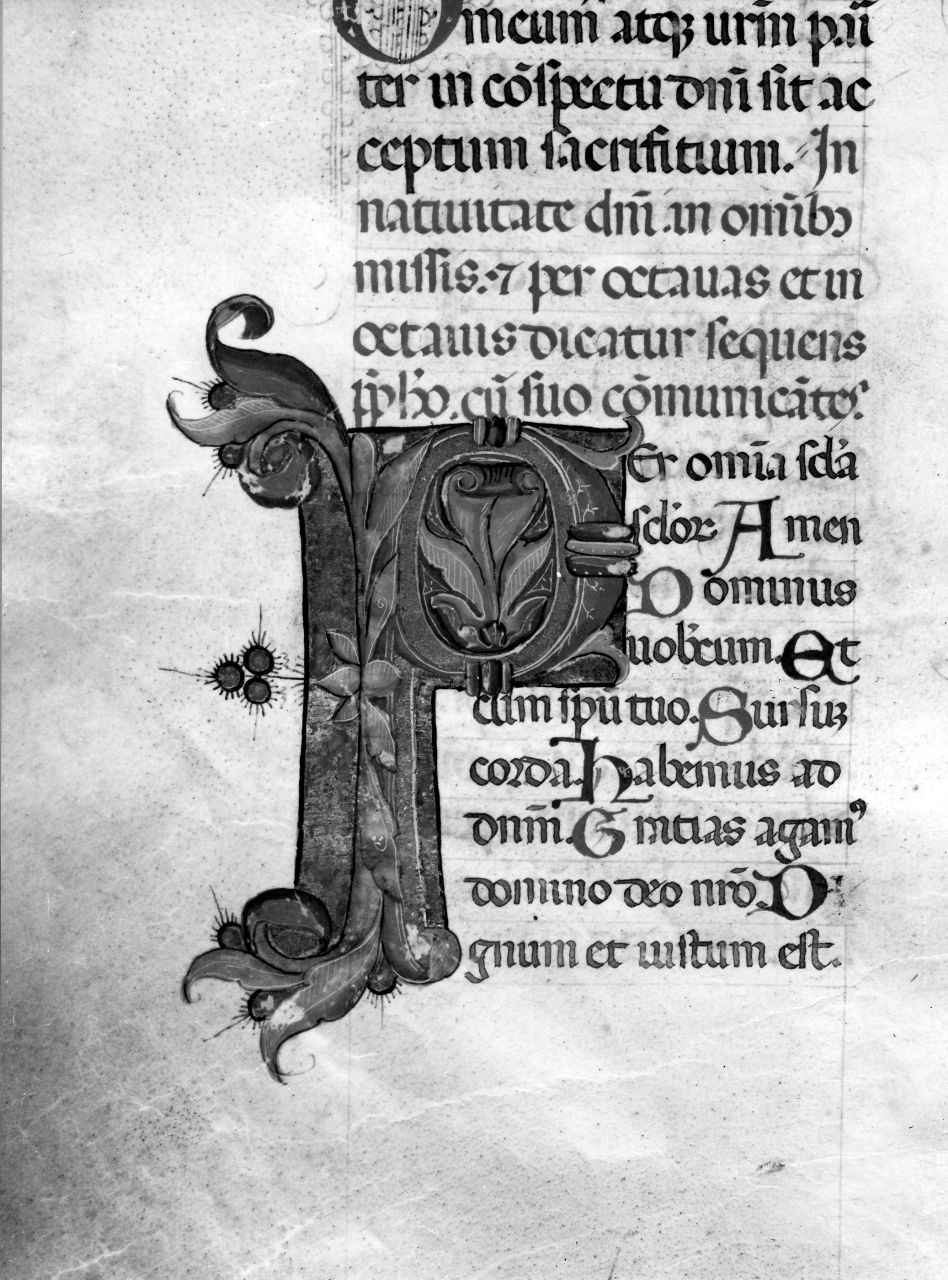 meum atqꝫ urm̄ pari
ter in cōspectu dnī sit ac
ceptum sacrifitium. In
natiuitate dnī in omibꝫ
missis. ⁊ per octauas et in
octauis dicatur sequens
cū suo cōmunicātes.
Per omīa scl̄a
scl̄oꝝ Amen
Dominus
uobiscum. Et
cum spū tuo. Sursuꝫ
corda Habemus ad
dnm̄. Gratias agamꝰ
domino deo nrō. D
gnum et iustum est.